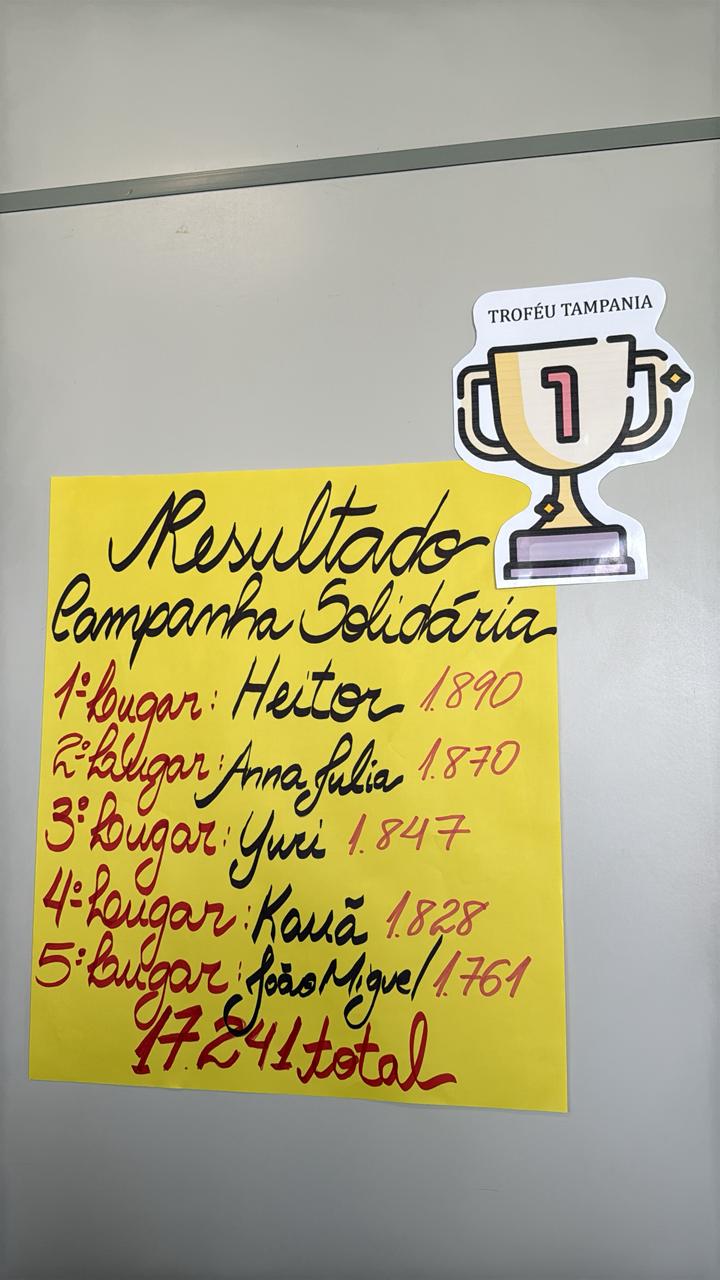 TROFÉU TAMPANIA
1
Resultado
Campanha Solidária
1º Lugar: Heitor 1.890
2º Lugar: Anna Julia 1.870
3º Lugar: Yuri 1.847
4º Lugar: Kauã 1.828
5º Lugar: João Miguel 1.761
17.241 total